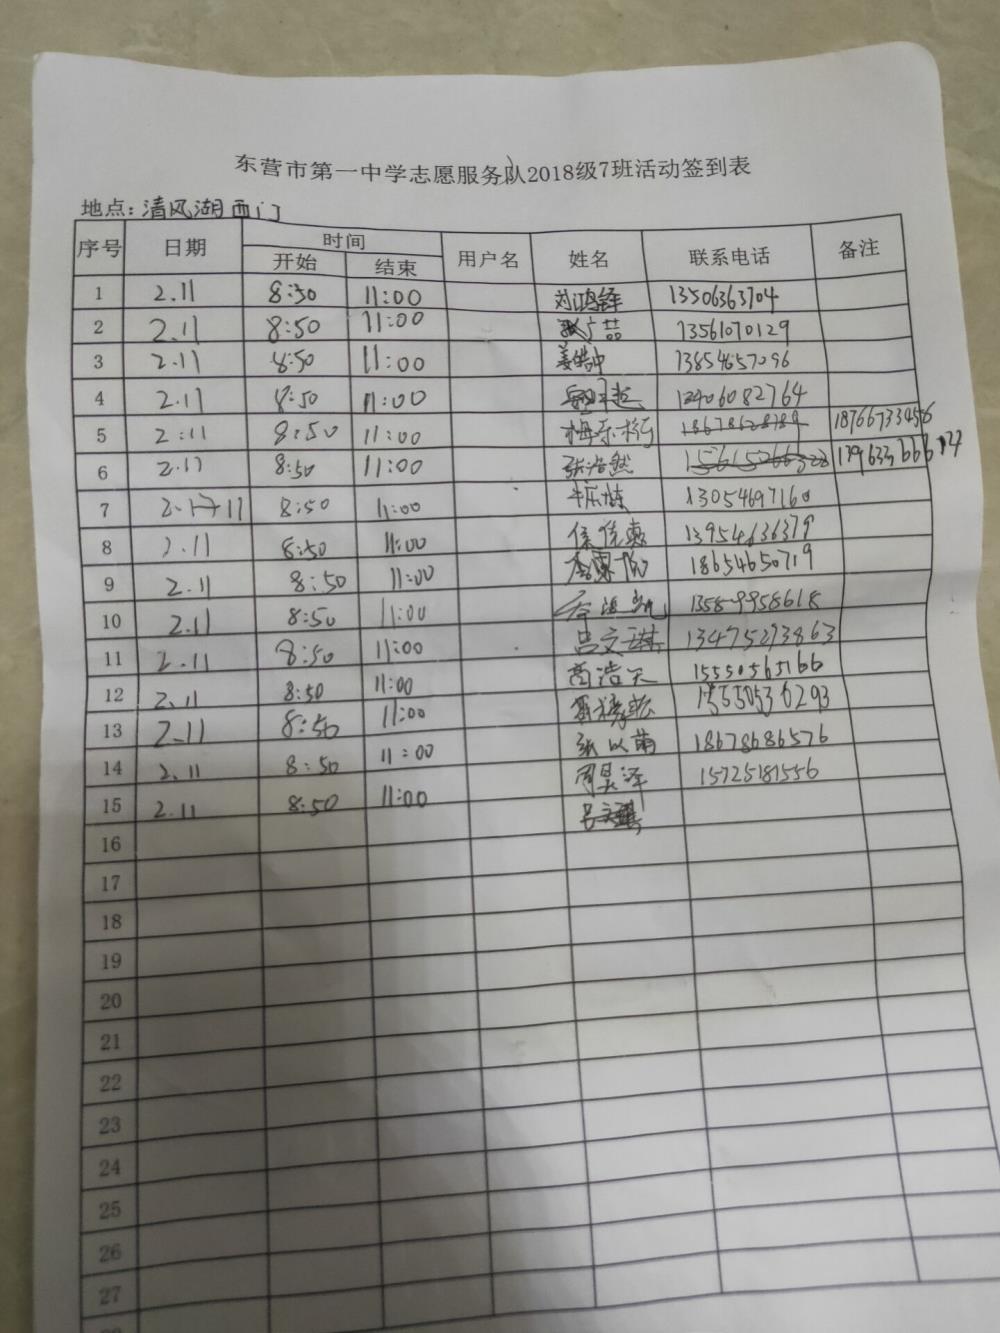 东营市第一中学志愿服务队2018级7班活动签到表
地点:清风湖西门
序号 日期 时间 用户名 姓名 联系电话 备注
开始 结束
1 2.11 8:50 11:00 刘鸿铎 13506363704
2 2.11 8:50 11:00 张广喆 13561070129
3 2.11 8:50 11:00 姜皓中 13854657096
4 2.11 8:50 11:00 13406082764
5 2.11 8:50 11:00 梅乐桥 18678628789 18766733456
6 2.11 8:50 11:00 张浩然 15615266328
7 2.17 11 8:50 11:00 13054697160
8 2.11 8:50 11:00 13954636379
9 2.11 8:50 11:00 18654650719
10 2.11 8:50 11:00 13589958618
11 2.11 8:50 11:00 吕文琪 13475293863
12 2.11 8:50 11:00 商浩天 15550565166
13 2.11 8:50 11:00 15550536293
14 2.11 8:50 11:00 张以萌 18678686576
15 2.11 8:50 11:00 周昊泽 15725181556
吕文琪
16
17
18
19
20
21
22
23
24
25
26
27